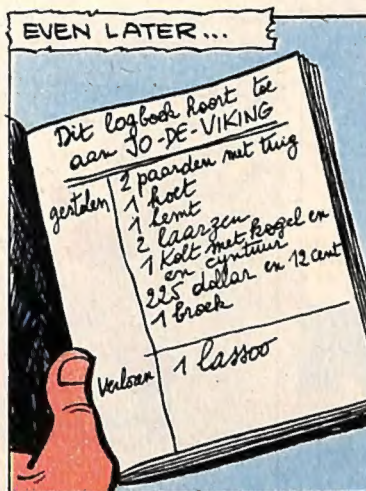 EVEN LATER...
Dit logboek hoort toe
aan JO-DE-VIKING
gestolen
2 paarden met tuig
1 hoet
1 hemt
2 laarzen
1 Kolt met kogel en
en cyntuur
225 dollar en 12 cent
1 broek
Verloren
1 lassoo